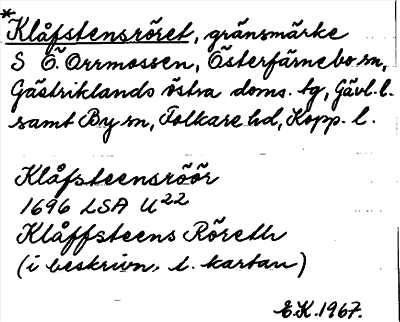 *Klåfstensröret, gränsmärke
S Ö. Orrmossen, Österfärnebo sn,
Gästriklands östra doms. tg, Gävl. l.
samt By sn, Folkare hd, Kopp. l.
Klåfsteensröör
1696 LSA U22
Klåffsteens Röreth
(i beskrivn. t. kartan)
E.K. 1967.